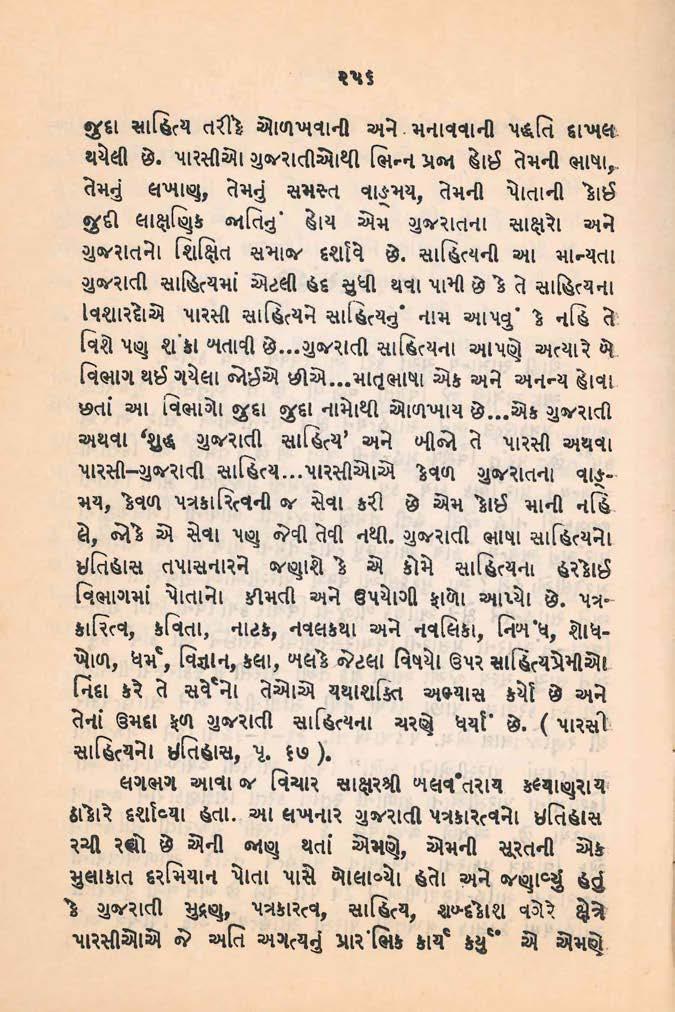 ૨૫૬
જુદા સાહિત્ય તરીકે ઓળખવાની અને મનાવવાની પદ્ધતિ દાખલ
થયેલી છે. પારસીઓ ગુજરાતીઓથી ભિન્ન પ્રજા હોઈ તેમની ભાષા,
તેમનું લખાણ, તેમનું સમસ્ત વાઙ્મય, તેમની પોતાની કોઈ
જુદી લાક્ષણિક જાતિનું હોય એમ ગુજરાતના સાક્ષરો અને
ગુજરાતનો શિક્ષિત સમાજ દર્શાવે છે. સાહિત્યની આ માન્યતા
ગુજરાતી સાહિત્યમાં એટલી હદ સુધી થવા પામી છે કે તે સાહિત્યના
વિશારદોએ પારસી સાહિત્યને સાહિત્યનું નામ આપવું કે નહિ તે
વિશે પણ શંકા બતાવી છે...ગુજરાતી સાહિત્યના આપણે અત્યારે બે
વિભાગ થઈ ગયેલા જોઈએ છીએ...માતૃભાષા એક અને અનન્ય હોવા
છતાં આ વિભાગો જુદા જુદા નામોથી ઓળખાય છે...એક ગુજરાતી
અથવા ‘શુદ્ધ ગુજરાતી સાહિત્ય’ અને બીજો તે પારસી અથવા
પારસી–ગુજરાતી સાહિત્ય...પારસીઓએ કેવળ ગુજરાતના વાઙ્-
મય, કેવળ પત્રકારિત્વની જ સેવા કરી છે એમ કોઈ માની નહિ
લે, જોકે એ સેવા પણ જેવી તેવી નથી. ગુજરાતી ભાષા સાહિત્યનો
ઇતિહાસ તપાસનારને જણાશે કે એ કોમે સાહિત્યના હરકોઈ
વિભાગમાં પોતાનો કીમતી અને ઉપયોગી ફાળો આપ્યો છે. પત્ર-
કારિત્વ, કવિતા, નાટક, નવલકથા અને નવલિકા, નિબંધ, શોધ-
ખોળ, ધર્મ, વિજ્ઞાન, કલા, બલકે જેટલા વિષયો ઉપર સાહિત્યપ્રેમીઓ
નિંદા કરે તે સર્વેનો તેઓએ યથાશક્તિ અભ્યાસ કર્યો છે અને
તેનાં ઉમદા ફળ ગુજરાતી સાહિત્યના ચરણે ધર્યાં છે. ( પારસી
સાહિત્યનો ઇતિહાસ, પૃ. ૬૭ ).
લગભગ આવા જ વિચાર સાક્ષરશ્રી બલવંતરાય કલ્યાણરાય
ઠાકોરે દર્શાવ્યા હતા. આ લખનાર ગુજરાતી પત્રકારત્વનો ઇતિહાસ
રચી રહ્યો છે એની જાણ થતાં એમણે, એમની સૂરતની એક
મુલાકાત દરમિયાન પોતા પાસે બોલાવ્યો હતો અને જણાવ્યું હતું
કે ગુજરાતી મુદ્રણ, પત્રકારત્વ, સાહિત્ય, શબ્દકોશ વગેરે ક્ષેત્રે
પારસીઓએ જે અતિ અગત્યનું પ્રારંભિક કાર્ય કર્યું એ એમણે